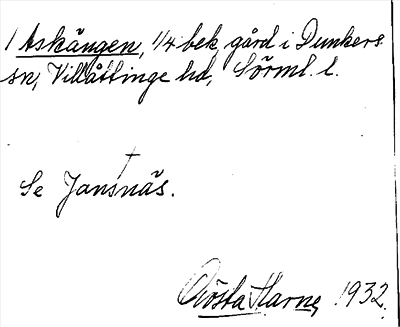 1 Askängen, 1/4 bek gård i Dunkers
sn, Villåttinge hd, Sörml. l.
Se Jansnäs.
Gösta Harne, 1932.